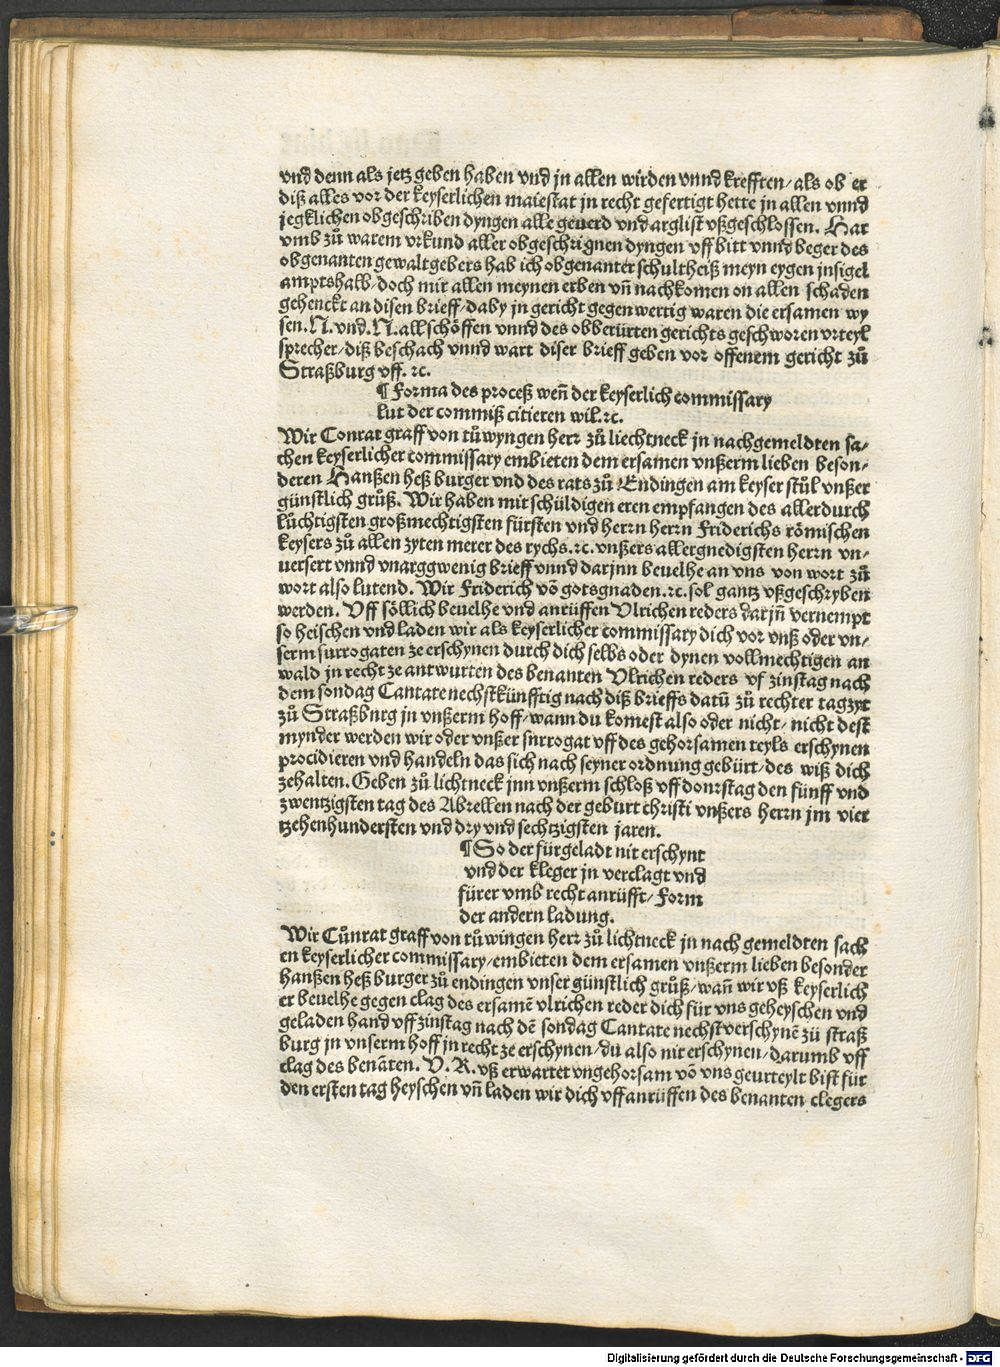 vnd denn als jetz geben haben vnd jn allen wirden vnnd krefften/ als ob er
diß alles vor der keyserlichen maiestat jn recht gefertigt hette jn allen vnnd
jegklichen obgeschriben dyngen alle geuerd vnd arglist vßgeschlossen. Har
vmb zů warem vrkund aller obgeschrignen dyngen vff bitt vnnd beger des
obgenanten gewaltgebers hab ich obgenanter schultheiß meyn eygen jnsigel
amptshalb/ doch mir allen meynen erben vñ nachkomen on allen schaden
gehenckt an disen brieff/ daby jn gericht gegen wertig waren die ersamen wy
sen. N. vnd. N. all schöffen vnnd des obberürten gerichts geschworen vrteyl
sprecher/ diß beschach vnnd wart diser brieff geben vor offenem gericht zů
Straßburg vff. ꝛc.
¶ Forma des proceß weñ der keyserlich commissary
lut der commiß citieren wil. ꝛc.
Wir Conrat graff von tůwyngen herr zů liechtneck jn nachgemeldten sa-
chen keyserlicher commissary embieten dem ersamen vnßerm lieben beson-
deren Hanßen heß burger vnd des rats zů Endingen am keyser stůl vnßer
günstlich grůß. Wir haben mit schüldigen eren empfangen des allerdurch
lüchtigsten großmechtigsten fürsten vnd herrn herrn Friderichs römischen
keysers zů allen zyten merer des rychs. ꝛc. vnßers allergnedigsten herrn vn-
uersert vnnd vnarggwenig brieff vnnd darjnn beuelhe an vns von wort zů
wort also lutend. Wir Friderich võ gotsgnaden. ꝛc. sol gantz vßgeschryben
werden. Vff söllich beuelhe vnd anrüffen Vlrichen reders darjñ vernempt
so heischen vnd laden wir als keyserlicher commissary dich vor vnß oder vn-
serm surrogaten ze erschynen durch dich selbs oder dynen vollmechtigen an
wald jn recht ze antwurten des benanten Vlrichen reders vf zinstag nach
dem sondag Cantate nechstkünfftig nach diß brieffs datū zů rechter tagzyt
zů Straßburg jn vnßerm hoff/ wann du komest also oder nicht/ nicht dest
mynder werden wir oder vnßer surrogat vff des gehorsamen teyls erschynen
procidieren vnd handeln das sich nach seyner ordnung gebürt/ des wiß dich
zehalten. Geben zů lichtneck jnn vnßerm schloß vff donrstag den fünff vnd
zwentzigsten tag des Abrellen nach der geburt christi vnßers herrn jm vier
tzehenhundersten vnd dry vnd sechtzigsten jaren.
¶ So der fürgeladt nit erschynt
vnd der kleger jn verclagt vnd
fürer vmb recht anrüfft/ Form
der andern ladung.
Wir Cůnrat graff von tůwingen herr zů lichtneck jn nach gemeldten sach
en keyserlicher commissary/ embieten dem ersamen vnßerm lieben besonder
hanßen heß burger zů endingen vnser günstlich grůß/ wañ wir vß keyserlich
er beuelhe gegen clag des ersamē vlrichen reder dich für vns geheyschen vnd
geladen hand vff zinstag nach dē sondag Cantate nechstverschynē zů straß
burg jn vnserm hoff jn recht ze erschynen/ du also nit erschynen/ darumb vff
clag des benāten. V. R. vß erwartet vngehorsam võ vns geurteylt bist für
den ersten tag heyschen vñ laden wir dich vff anrüffen des benanten clegers
Digitalisierung gefördert durch die Deutsche Forschungsgemeinschaft - DFG